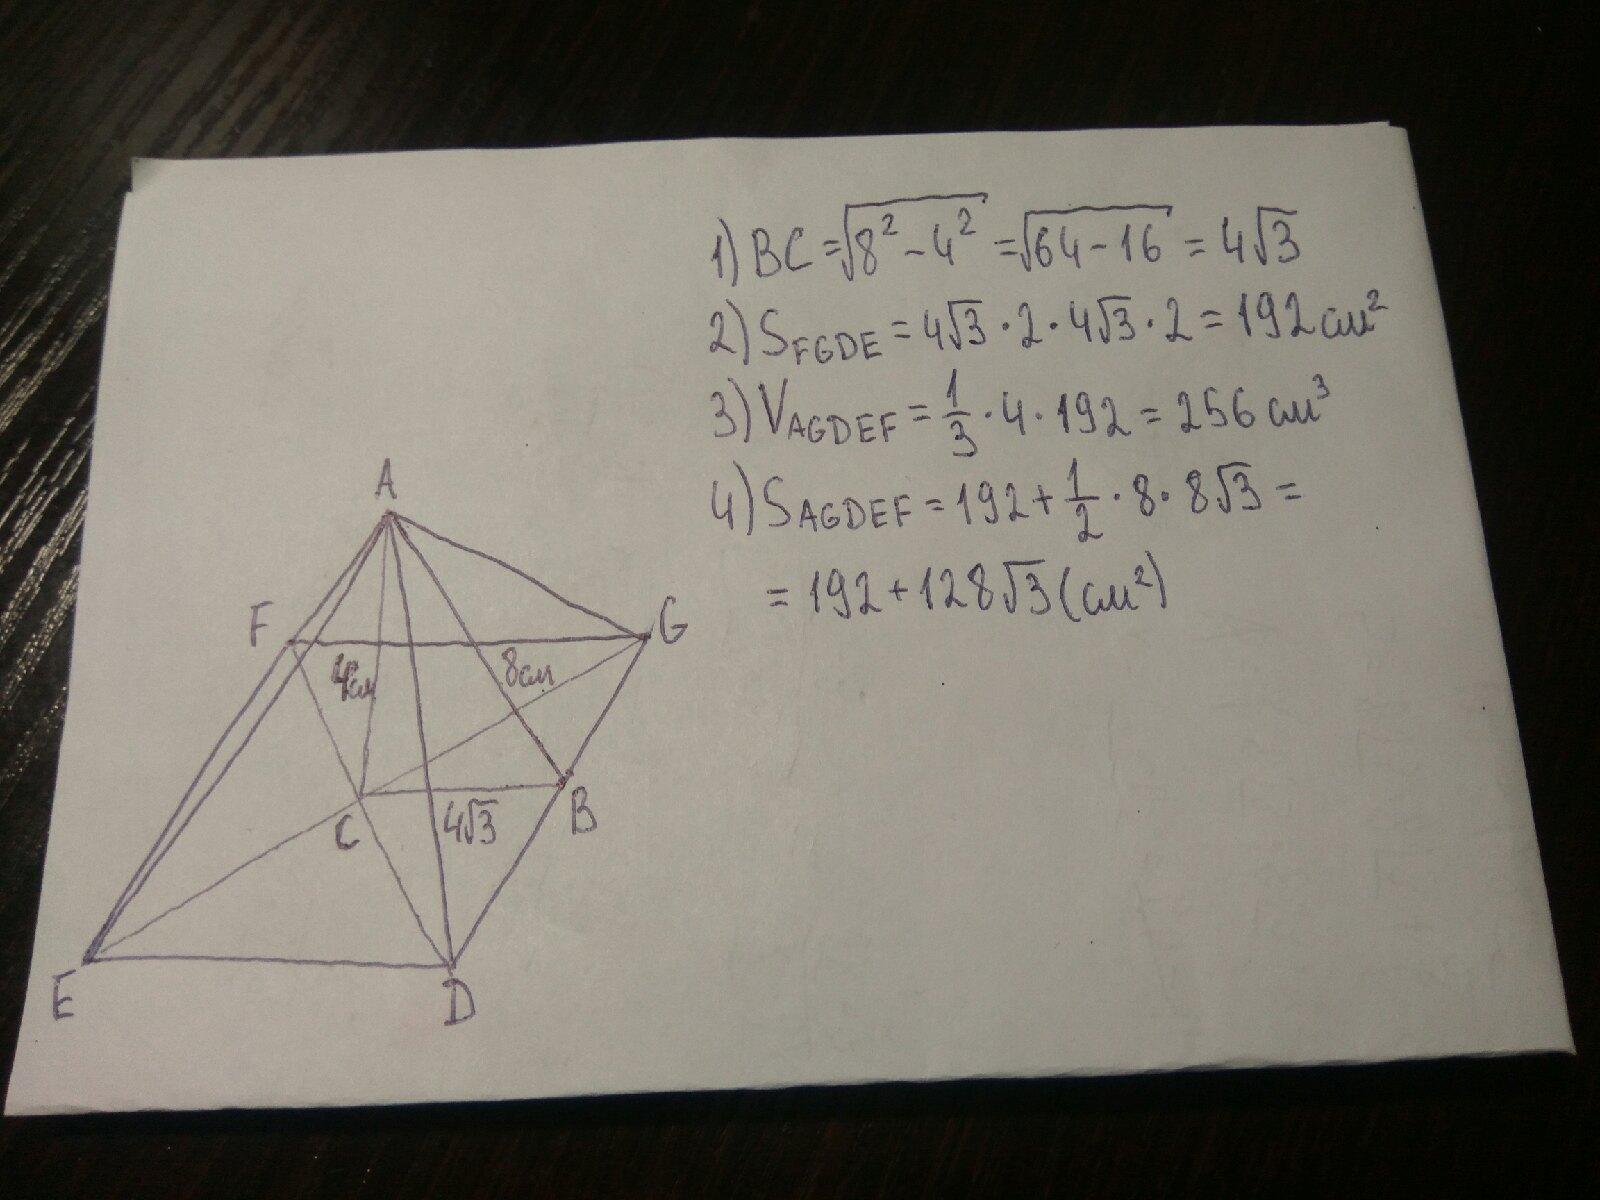 1) BC = √8² - 4² = √64 - 16 = 4√3
2) S FGDE = 4√3 · 2 · 4√3 · 2 = 192 см²
3) V AGDEF = 1/3 · 4 · 192 = 256 см³
4) S AGDEF = 192 + 1/2 · 8 · 8√3 =
= 192 + 128√3 (см²)
A
F
G
4см
8см
C
4√3
B
E
D